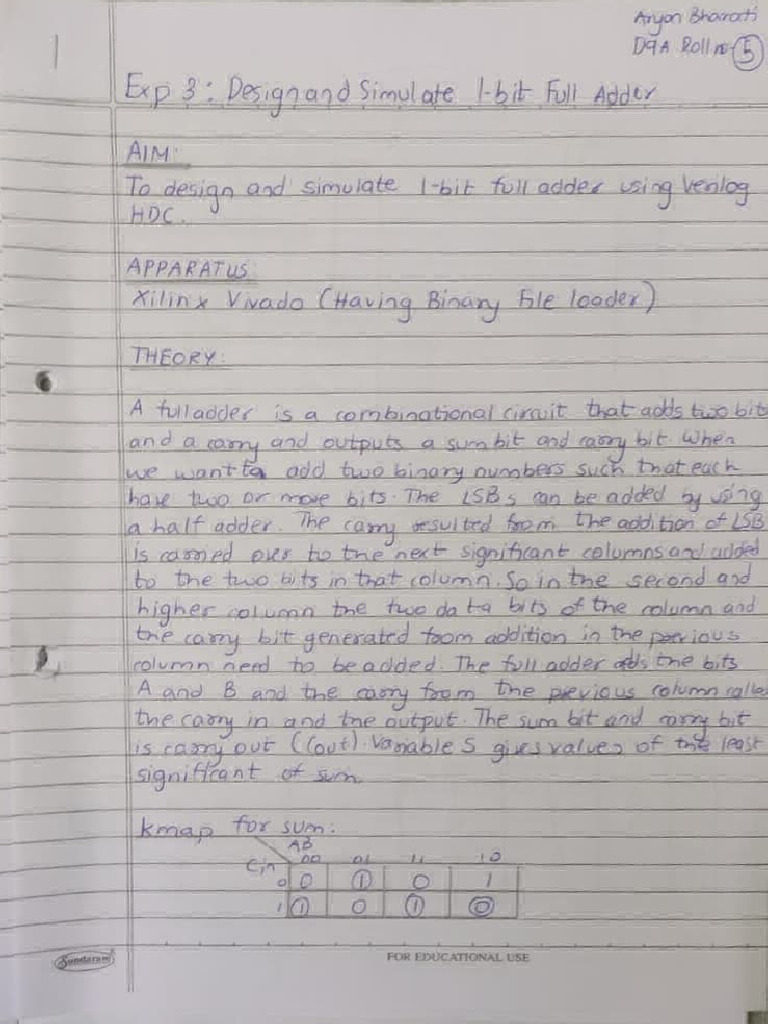 Aryan Bharati
D9A Roll no 5
1
Exp 3: Design and Simulate 1-bit Full Adder
AIM:
To design and simulate 1-bit full adder using Verilog
HDC.
APPARATUS
Xilinx Vivado (Having Binary File loader)
THEORY:
A fulladder is a combinational circuit that adds two bit
and a carry and outputs a sum bit and carry bit. When
we want to add two binary numbers such that each
have two or more bits. The LSBs can be added by using
a half adder. The carry resulted from the addition of LSB
is carried over to the next significant columns and added
to the two bits in that column. So in the second and
higher column the two data bits of the column and
the carry bit generated from addition in the previous
column need to be added. The full adder adds the bits
A and B and the carry from the previous column called
the carry in and the output. The sum bit and carry bit
is carry out (Cout). Variable S gives values of the least
significant of sum.
kmap for sum:
AB
Cin 00 01 11 10
0 0 1 0 1
1 1 0 1 0
Sundaram
FOR EDUCATIONAL USE